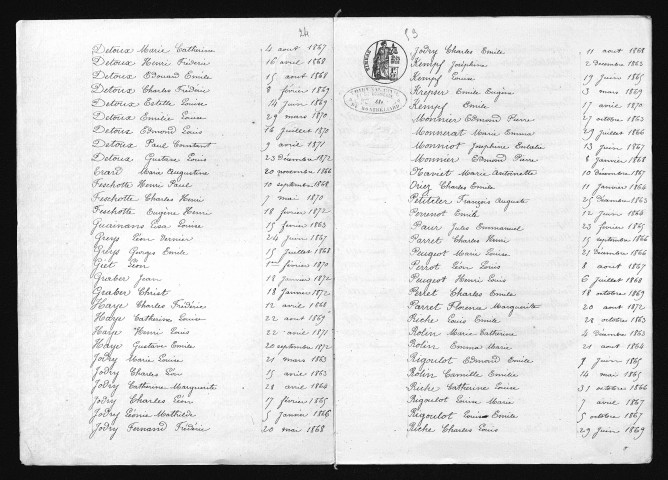 24
Detoux Marie Catherine 4 aout 1867
Detoux Henri Frédéric 16 avril 1868
Detoux Edouard Emile 15 aout 1868
Detoux Charles Frédéric 8 février 1869
Detoux Estelle Louise 14 Juin 1869
Detoux Emilie Louise 29 mars 1870
Detoux Edmond Louis 16 Juillet 1870
Detoux Paul Constant 9 avril 1871
Detoux Gustave Louis 23 Décembre 1872
Erard Marie Augustine 20 novembre 1866
Feschotte Henri Paul 10 septembre 1868
Feschotte Charles Henri 7 mai 1870
Feschotte Eugène Henri 18 février 1872
Lisa Louise 15 février 1863
Greys Léon Dernier 24 Juin 1867
Greys Georges Emile 15 Juillet 1868
Giet Léon 1er février 1870
Graber Jean 18 Janvier 1872
Graber Christ 18 Janvier 1872
Haye Charles Frédéric 12 avril 1866
Haye Catherine Louise 22 aout 1869
Haye Henri Louis 22 avril 1871
Haye Gustave Emile 20 septembre 1872
Jodry Marie Louise 21 mars 1863
Jodry Charles Léon 15 avril 1863
Jodry Catherine Marguerite 28 avril 1864
Jodry Charles Léon 17 février 1865
Jodry Léonie Mathilde 5 Janvier 1866
Jodry Fernand Frédéric 20 mai 1868
53
Jodry Charles Emile 11 aout 1868
Kempf Joséphine 2 Décembre 1863
Kempf Louise 19 Juin 1865
Emile Eugène 3 mars 1869
Kempf Emile 17 avril 1870
Monnier Edmond Pierre 27 octobre 1863
Monnerat Marie Emma 27 Juillet 1866
Monniot Joséphine Eulalie 13 Juin 1867
Monnier Edmond Pierre 8 Janvier 1868
Marie Antoinette 10 Décembre 1867
Charles Emile 11 Janvier 1864
Petiteler François Auguste 25 Décembre 1863
Perenot Emile 12 Juin 1864
Paur Jules Emmanuel 23 février 1865
Parret Charles Henri 15 septembre 1866
Peugeot Marie Louise 21 Décembre 1866
Perrot Léon Louis 8 aout 1867
Peugeot Henri Louis 6 Juillet 1868
Perret Charles Emile 18 octobre 1869
Parret Florena Marguerite 20 aout 1872
Riche Louis Emile 22 octobre 1863
Rolin Marie Catherine 4 Décembre 1863
Rolin Emma Marie 21 aout 1864
Rigoulot Edmond Emile 9 Juin 1865
Rolin Camille Emilie 14 mai 1865
Riche Catherine Louise 31 octobre 1866
Rigoulot Louise Marie 7 avril 1867
Rigoulot Louis Emile 5 octobre 1867
Riche Charles Louis 29 Juin 1869